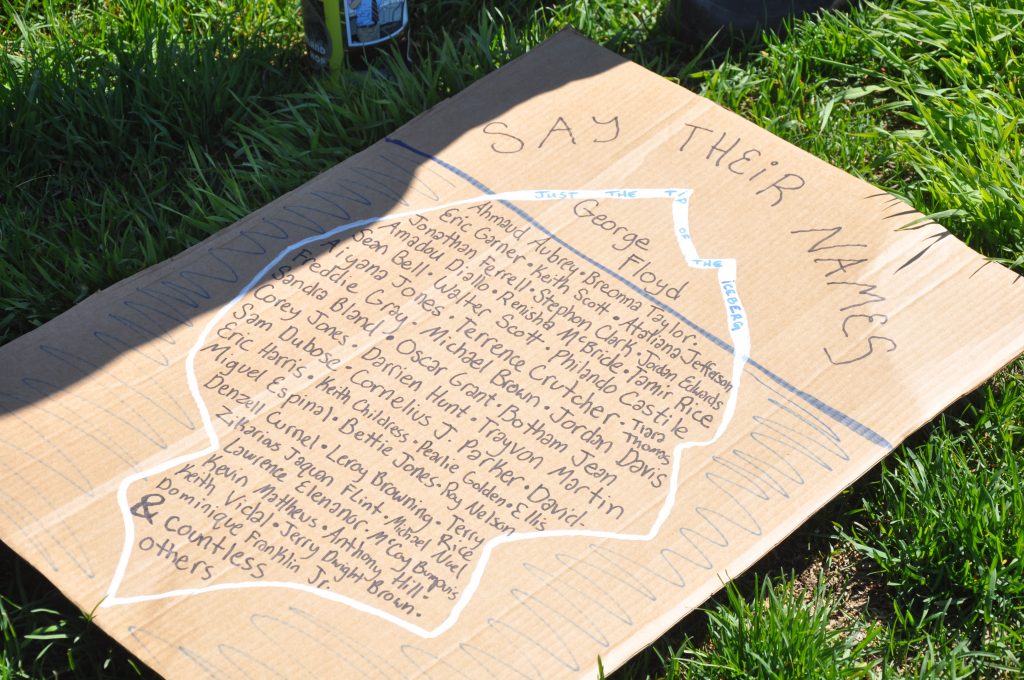 SAY THEIR NAMES
JUST THE TIP OF THE ICEBERG
George
Floyd
Ahmaud Aubrey · Breonna Taylor ·
Eric Garner · Keith Scott · Atatiana Jefferson
Jonathan Ferrell · Stephon Clark · Jordan Edwards
Amadou Diallo · Renisha McBride · Tamir Rice
Sean Bell · Walter Scott · Philando Castile
Aiyana Jones · Terrence Crutcher · Tiara Thomas
Freddie Gray · Michael Brown · Jordan Davis
Sandra Bland · Oscar Grant · Botham Jean
Corey Jones · Darrien Hunt · Trayvon Martin
Sam Dubose · Cornelius J. Parker · David-
Eric Harris · Keith Childress · Pearlie Golden · Ellis
Miguel Espinal · Bettie Jones · Roy Nelson
Denzall Curnel · Leroy Browning · Terry Rice
Zikarious Jaquan Flint · Michael Noel
Lawrence Elenanor McCay Bumpurs
Kevin Matthews · Anthony Hill ·
Keith Vidal · Jerry Dwight Brown ·
Dominique Franklin Jr.
& countless
others